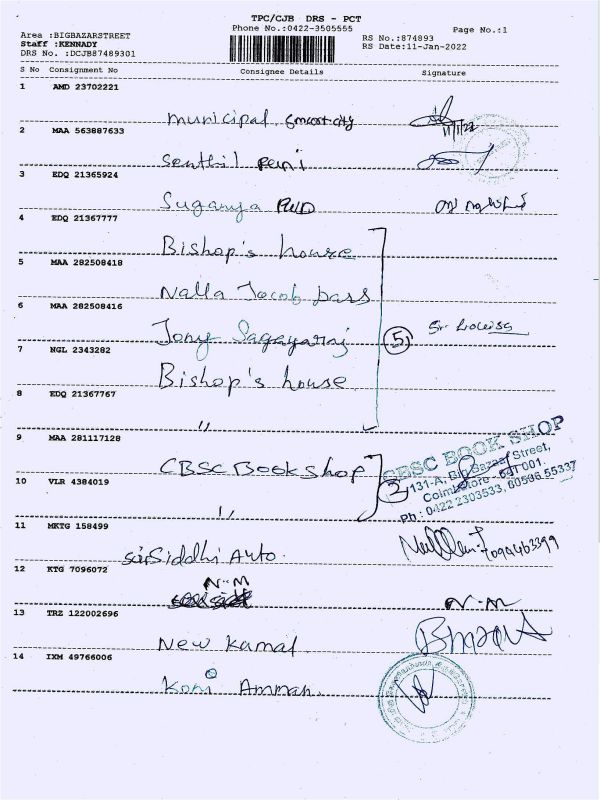 TPC/CJB DRS - PCT
Phone No.:0422-3505555
Page No.:1
Area :BIGBAZARSTREET
RS No.:874893
Staff :KENNADY
RS Date:11-Jan-2022
DRS No. :DCJB87489301
S No Consignment No Consignee Details Signature
1 AMD 23702221
municipal smart city
11/1/22
2 MAA 563887633
Senthil
3 EDQ 21365924
Suganya PWD
4 EDQ 21367777
Bishop's house
5 MAA 282508418
Nalla Jacob Dass
6 MAA 282508416
Jony Sagayaraj
5
7 NGL 2343282
Bishop's house
8 EDQ 21367767
"
9 MAA 281117128
CBSC Book shop
CBSC BOOK SHOP
131-A, Big Bazaar Street,
Coimbatore - 641 001.
Ph : 0422 2303533,
10 VLR 4384019
"
2
11 MKTG 158499
Siddhi Auto.
12 KTG 7096072
N.M
N.M
13 TRZ 122002696
New Kamal
14 IXM 49766006
Koni Amman.